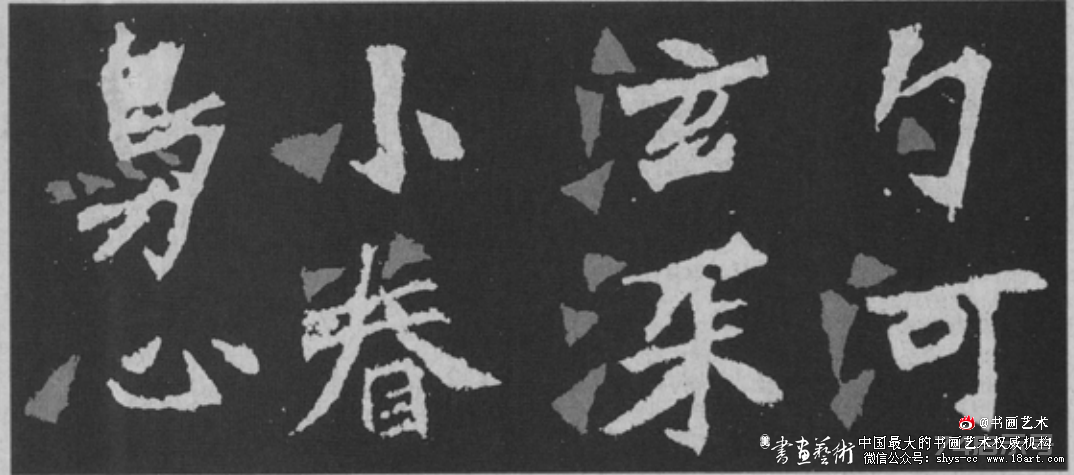 勺河
泫深
小眷
心
@书画艺术
書畫藝術
中国最大的书画艺术权威机构
微信公众号: shys-cc www.18art.com